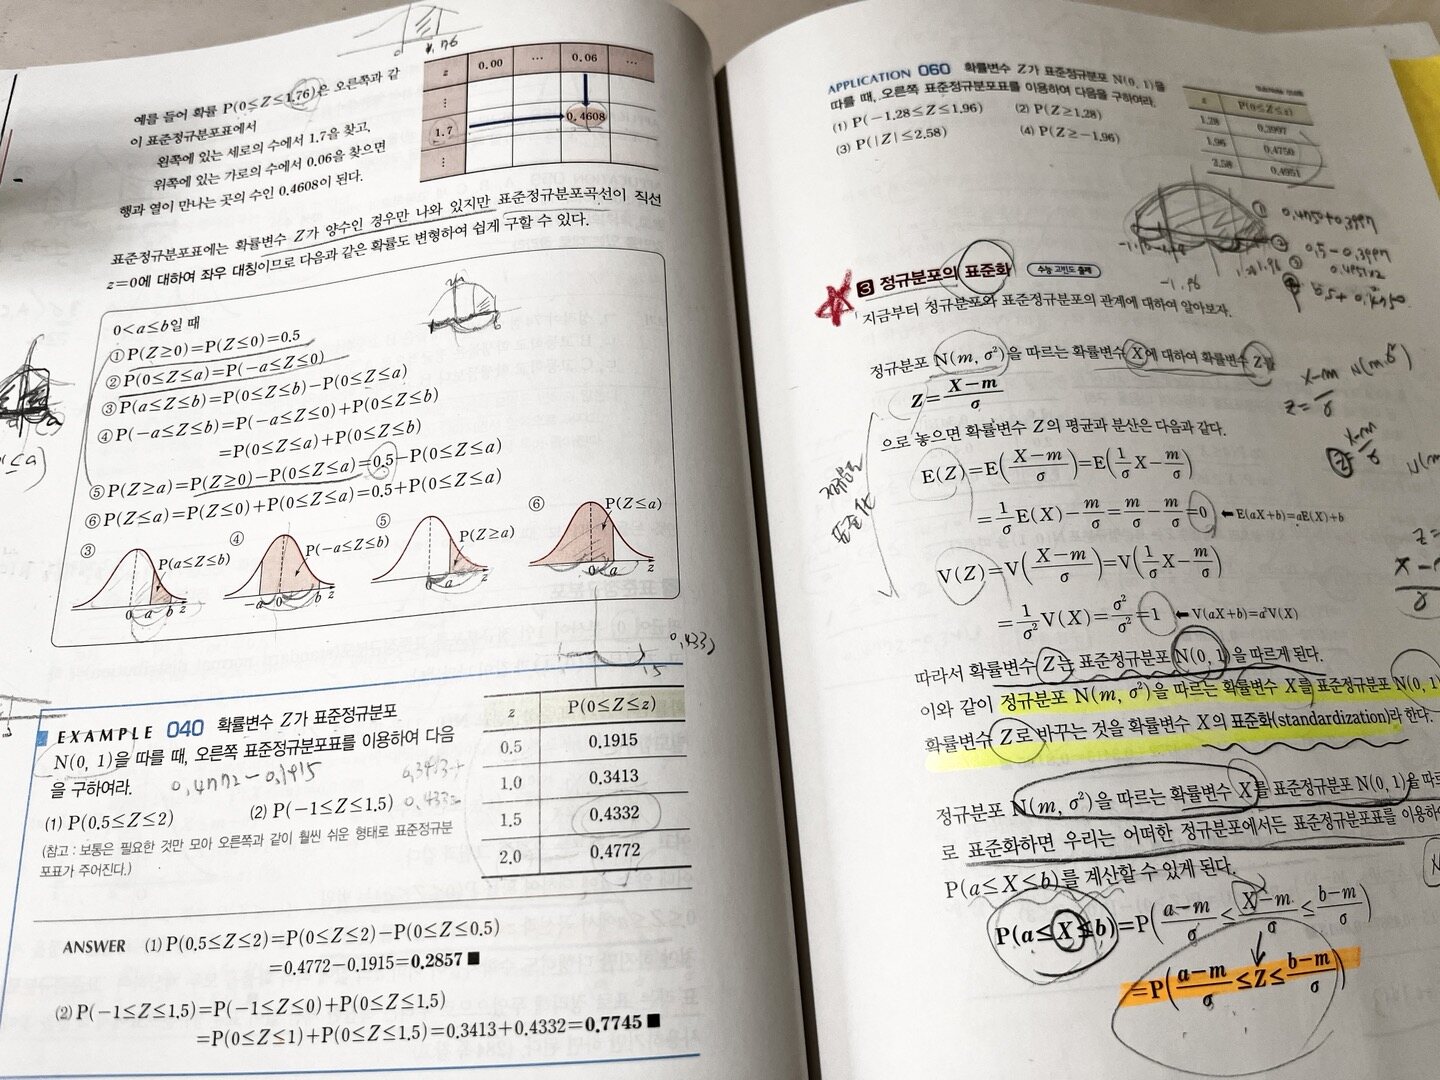 1.76
예를 들어 확률 P(0≤Z≤1.76)은 오른쪽과 같
이 표준정규분포표에서
왼쪽에 있는 세로의 수에서 1.7을 찾고,
위쪽에 있는 가로의 수에서 0.06을 찾으면
행과 열이 만나는 곳의 수인 0.4608이 된다.
z 0.00 ⋯ 0.06 ⋯
⋮
1.7 0.4608
⋮
표준정규분포표에는 확률변수 Z가 양수인 경우만 나와 있지만 표준정규분포곡선이 직선
z=0에 대하여 좌우 대칭이므로 다음과 같은 확률도 변형하여 쉽게 구할 수 있다.
0<a≤b일 때
① P(Z≥0)=P(Z≤0)=0.5
② P(0≤Z≤a)=P(-a≤Z≤0)
③ P(a≤Z≤b)=P(0≤Z≤b)-P(0≤Z≤a)
④ P(-a≤Z≤b)=P(-a≤Z≤0)+P(0≤Z≤b)
=P(0≤Z≤a)+P(0≤Z≤b)
⑤ P(Z≥a)=P(Z≥0)-P(0≤Z≤a)=0.5-P(0≤Z≤a)
⑥ P(Z≤a)=P(Z≤0)+P(0≤Z≤a)=0.5+P(0≤Z≤a)
③ P(a≤Z≤b) 0 a b z
④ P(-a≤Z≤b) -a 0 b z
⑤ P(Z≥a) 0 a z
⑥ P(Z≤a) 0 a z
EXAMPLE 040 확률변수 Z가 표준정규분포
N(0, 1)을 따를 때, 오른쪽 표준정규분포표를 이용하여 다음
을 구하여라.
0.4772-0.1915
(1) P(0.5≤Z≤2) (2) P(-1≤Z≤1.5)
(참고 : 보통은 필요한 것만 모아 오른쪽과 같이 훨씬 쉬운 형태로 표준정규분
포표가 주어진다.)
z P(0≤Z≤z)
0.5 0.1915
1.0 0.3413
1.5 0.4332
2.0 0.4772
ANSWER (1) P(0.5≤Z≤2)=P(0≤Z≤2)-P(0≤Z≤0.5)
=0.4772-0.1915=0.2857 ■
(2) P(-1≤Z≤1.5)=P(-1≤Z≤0)+P(0≤Z≤1.5)
=P(0≤Z≤1)+P(0≤Z≤1.5)=0.3413+0.4332=0.7745 ■
APPLICATION 060 확률변수 Z가 표준정규분포 N(0, 1)을
따를 때, 오른쪽 표준정규분포표를 이용하여 다음을 구하여라.
(1) P(-1.28≤Z≤1.96) (2) P(Z≥1.28)
(3) P(|Z|≤2.58) (4) P(Z≥-1.96)
z P(0≤Z≤z)
1.28 0.3997
1.96 0.4750
2.58 0.4951
0.4750+0.3997
0.5-0.3997
-1.96
3 정규분포의 표준화 수능 고빈도 출제
지금부터 정규분포와 표준정규분포의 관계에 대하여 알아보자.
정규분포 N(m, σ²)을 따르는 확률변수 X에 대하여 확률변수 Z를
Z=(X-m)/σ
으로 놓으면 확률변수 Z의 평균과 분산은 다음과 같다.
E(Z)=E((X-m)/σ)=E(1/σ X-m/σ)
=1/σ E(X)-m/σ=m/σ-m/σ=0 ⬅E(aX+b)=aE(X)+b
V(Z)=V((X-m)/σ)=V(1/σ X-m/σ)
=1/σ² V(X)=σ²/σ²=1 ⬅V(aX+b)=a²V(X)
따라서 확률변수 Z는 표준정규분포 N(0, 1)을 따르게 된다.
이와 같이 정규분포 N(m, σ²)을 따르는 확률변수 X를 표준정규분포 N(0, 1)
확률변수 Z로 바꾸는 것을 확률변수 X의 표준화(standardization)라 한다.
정규분포 N(m, σ²)을 따르는 확률변수 X를 표준정규분포 N(0, 1)을 따르
로 표준화하면 우리는 어떠한 정규분포에서든 표준정규분포표를 이용하여
P(a≤X≤b)를 계산할 수 있게 된다.
P(a≤X≤b)=P((a-m)/σ≤(X-m)/σ≤(b-m)/σ)
=P((a-m)/σ≤Z≤(b-m)/σ)